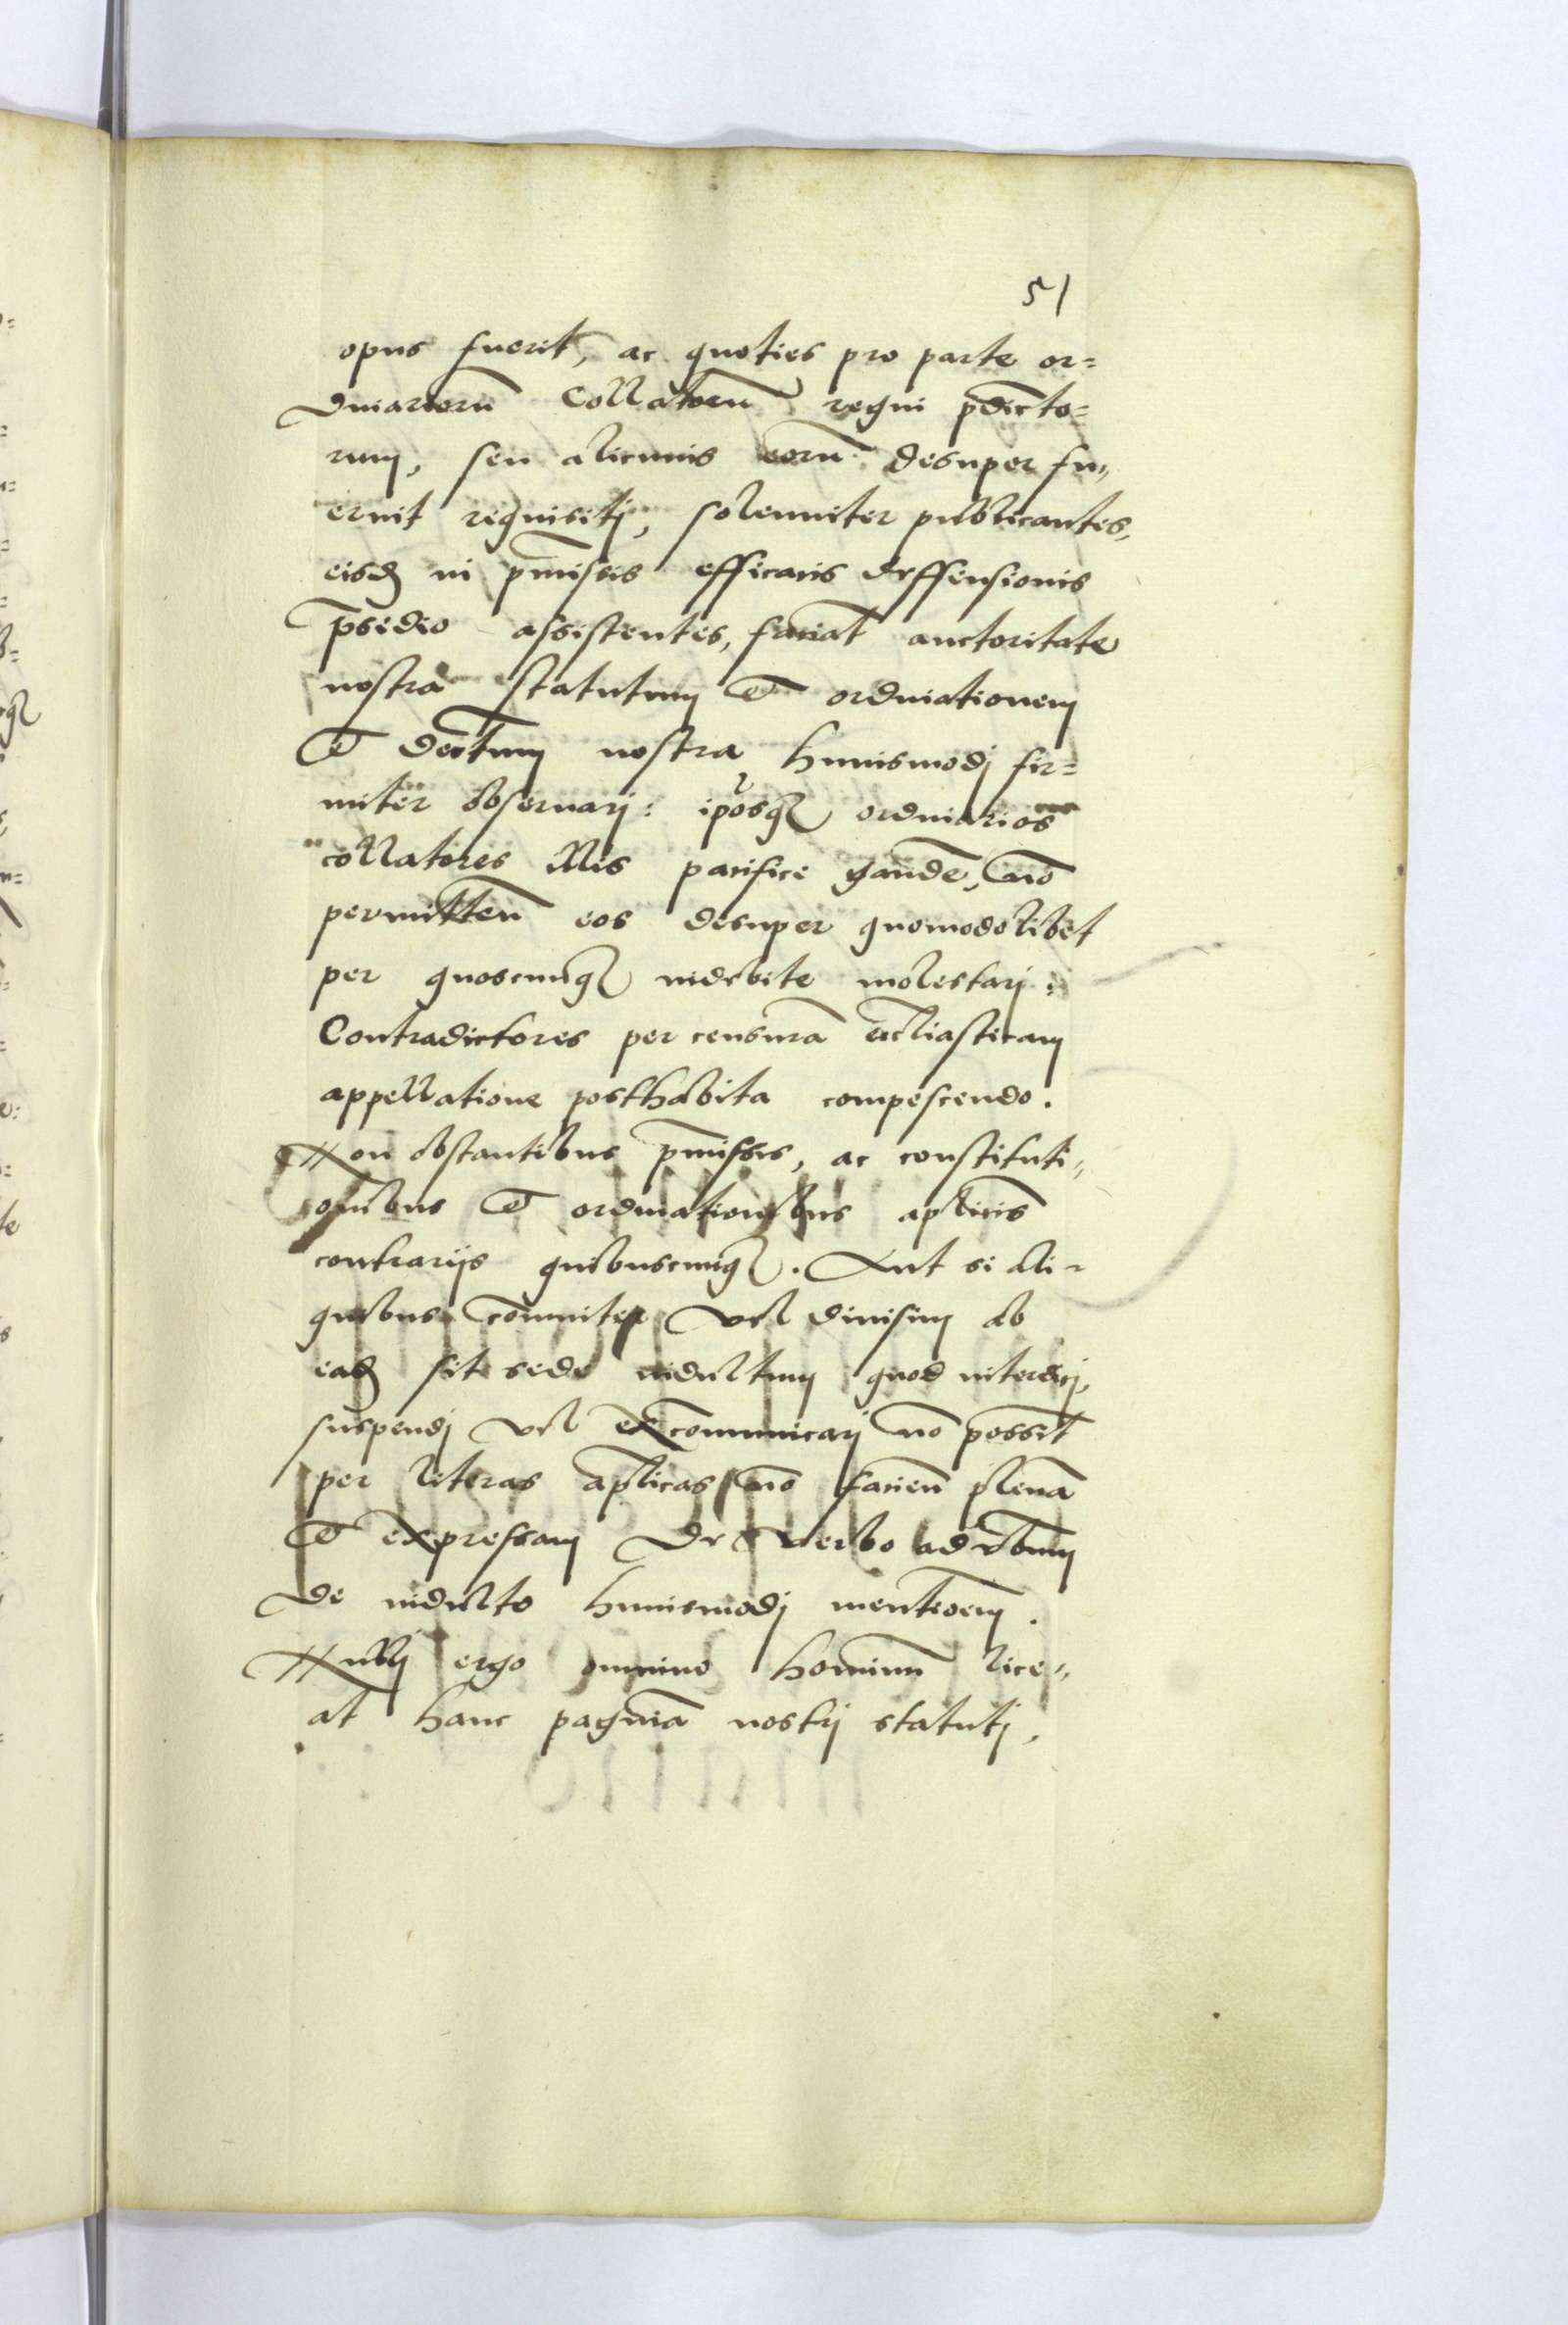 51
opus fuerit, ac quoties pro parte or=
dinariorū Collatorū regni p̄dicto=
rum, seu alicuius eorū desuper fu„
erint requisitj, solenniter publicantes,
eisdꝫ in p̄missis efficacis deffensionis
p̄sidio assistentes, faciāt auctoritate
nostra statutum et ordinationem
et decr̄tum nostra huiusmodj fir=
miter obseruarj: ip̄osqꝫ ordinarios
collatores illis pacifice gaudē, nō
permitteñ eos desuper quomodolibet
per quoscunqꝫ indebite molestarj:
Contradictores per censurā eccl̄iasticam
appellatione posthabita compescendo.
Non obstantibus p̄missis, ac constituti„
onibus et ordinationibus ap̄licis
contrarijs quibuscunqꝫ. Aut si ali=
quibus cōmuniter vel diuisim ab
eadꝫ sit sede indultum quod interdicj,
suspendj vel excommunicarj nō possint
per literas ap̄licas nō facieñ plenā
et expressam de verbo ad v̄bum
de indulto huiusmodj mentioēm.
Nullj ergo omnino hominū lice„
at hanc paginā nostrj statutj,